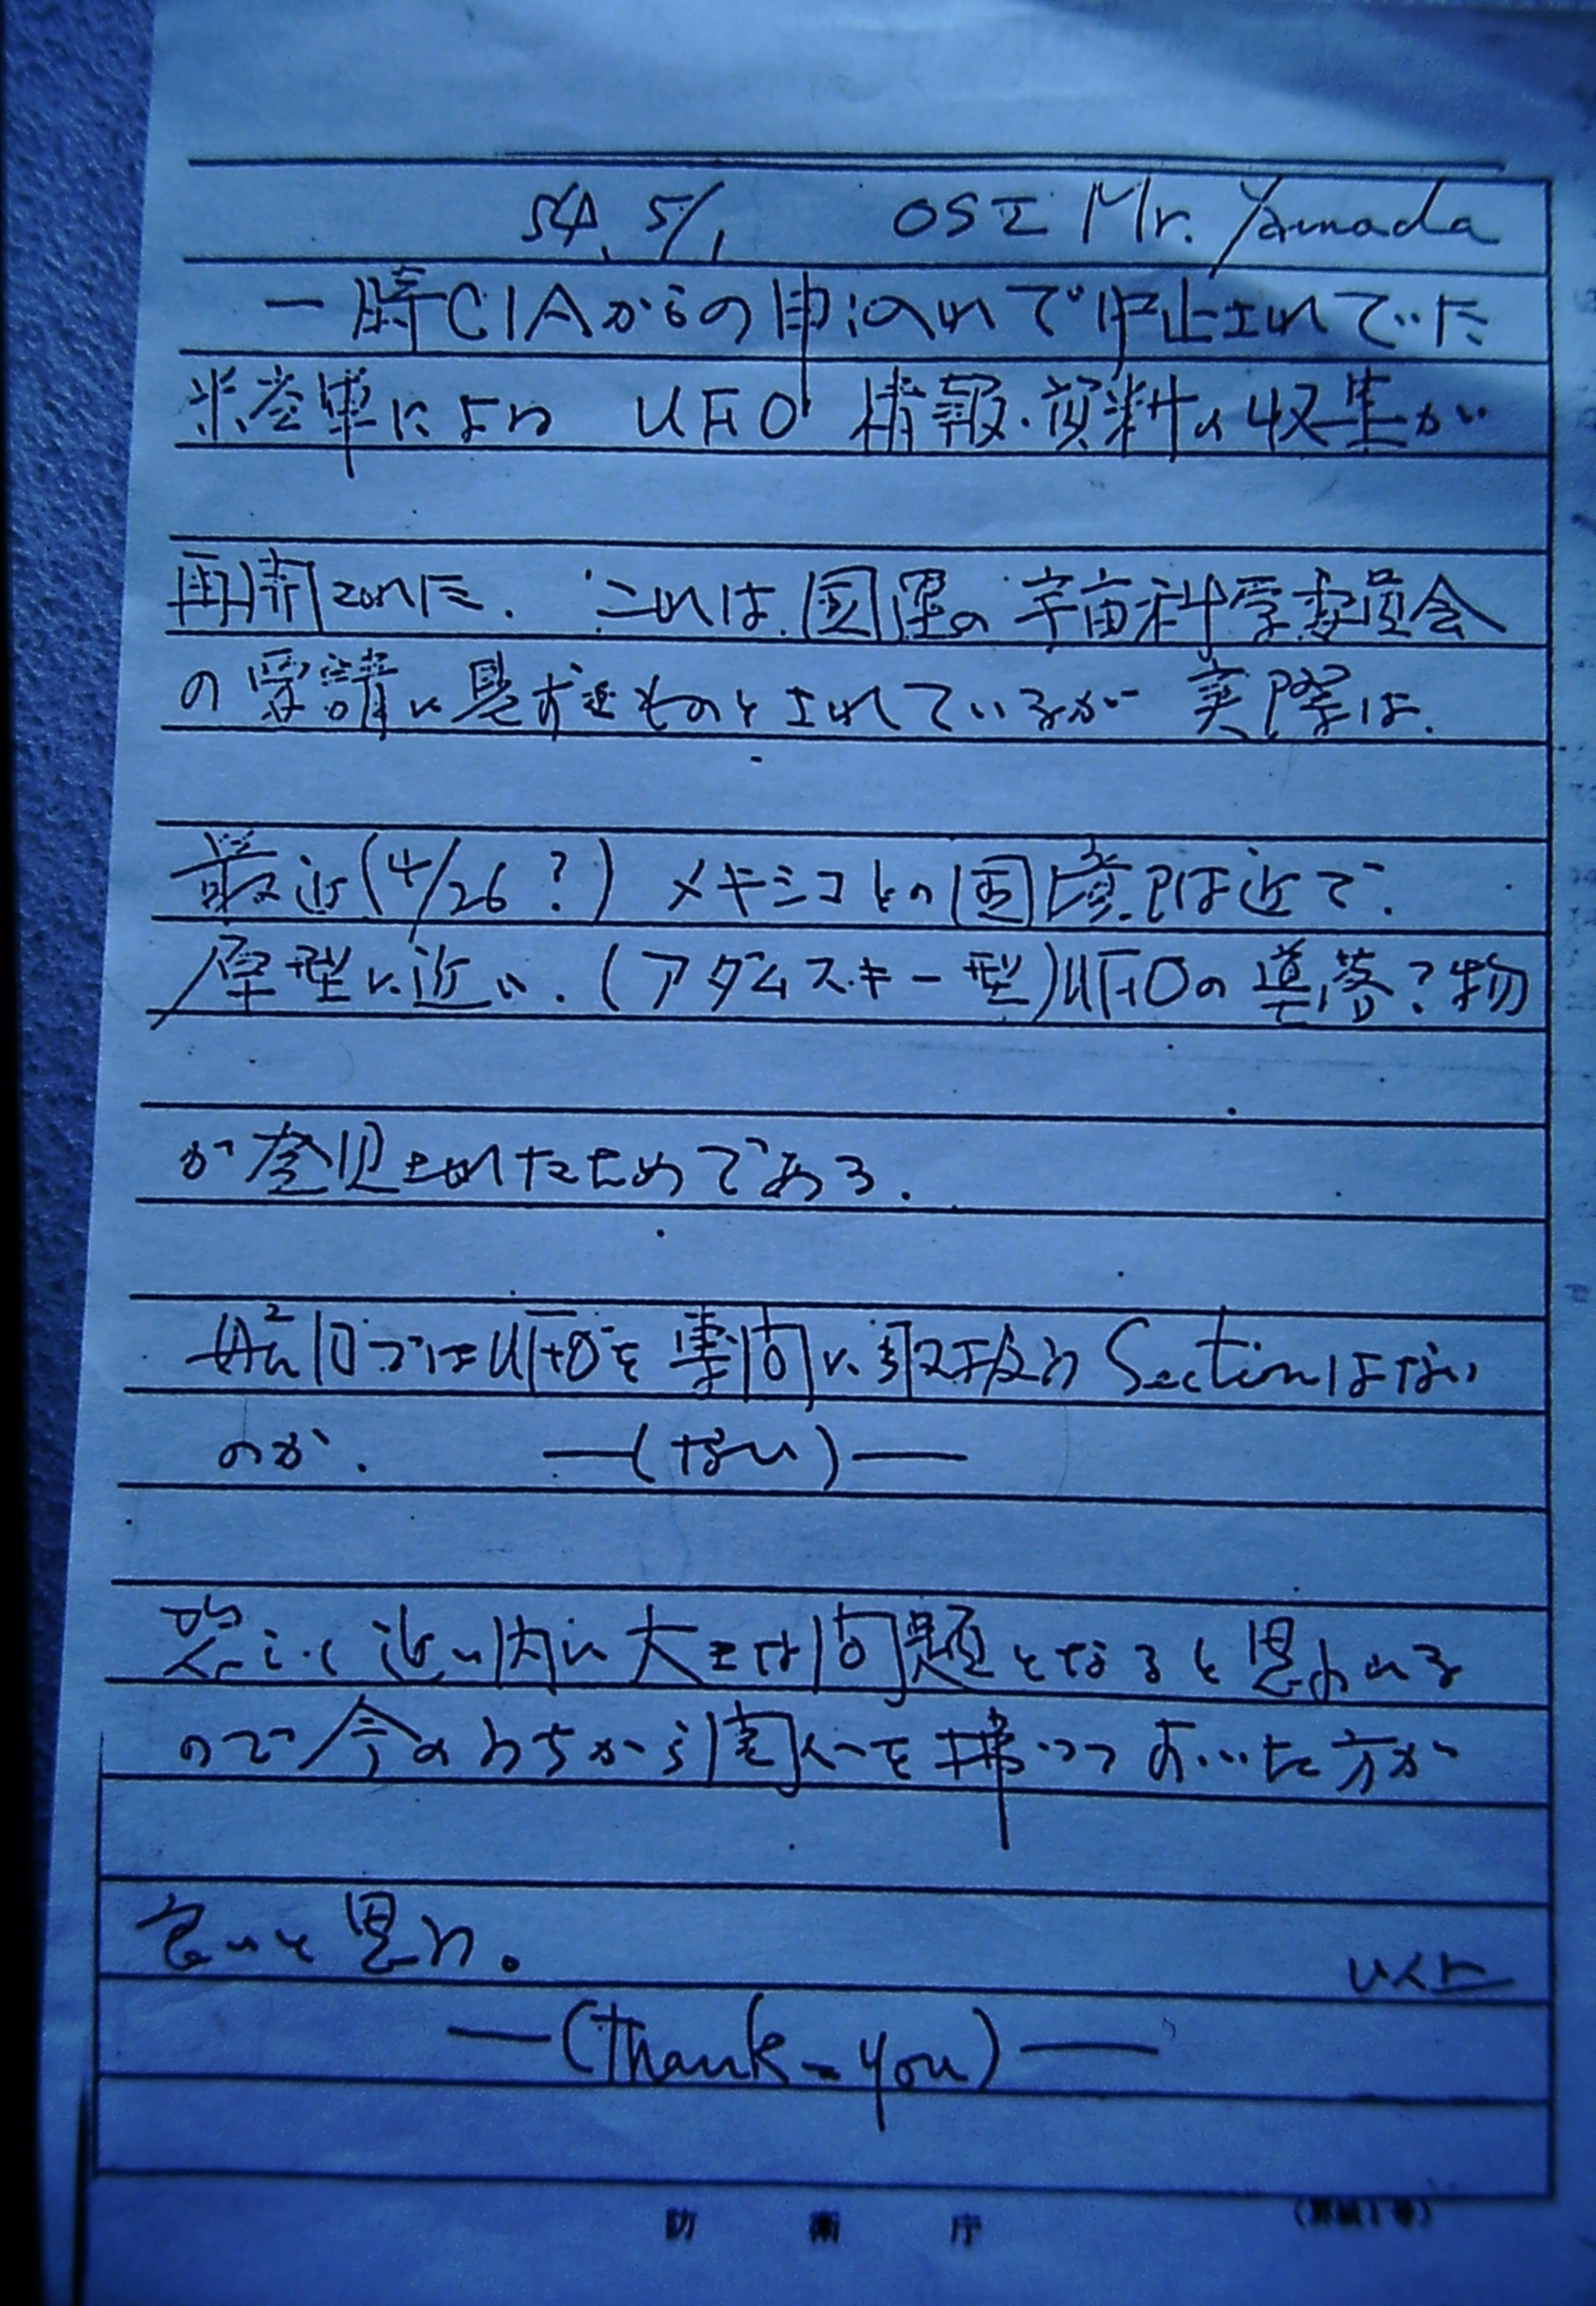 54. 5/1 OSI Mr. Yamada
一時CIAからの申し入れで中止されていた
米空軍による UFO 情報・資料の収集が
再開された. これは国連の宇宙科学委員会
の要請に基くものとされているが 実際は.
最近(4/26?) メキシコとの国境付近で.
原型に近い.(アダムスキー型)UFOの 落?物
が発見されたためである.
UFOを専門に取扱う Sectionはない
のか. —(ない)—
恐らく近い内に大きな問題となると思われる
ので今のうちから関心を拂っておいた方が
良いと思う。
以上
—(Thank-you)—
防衛庁